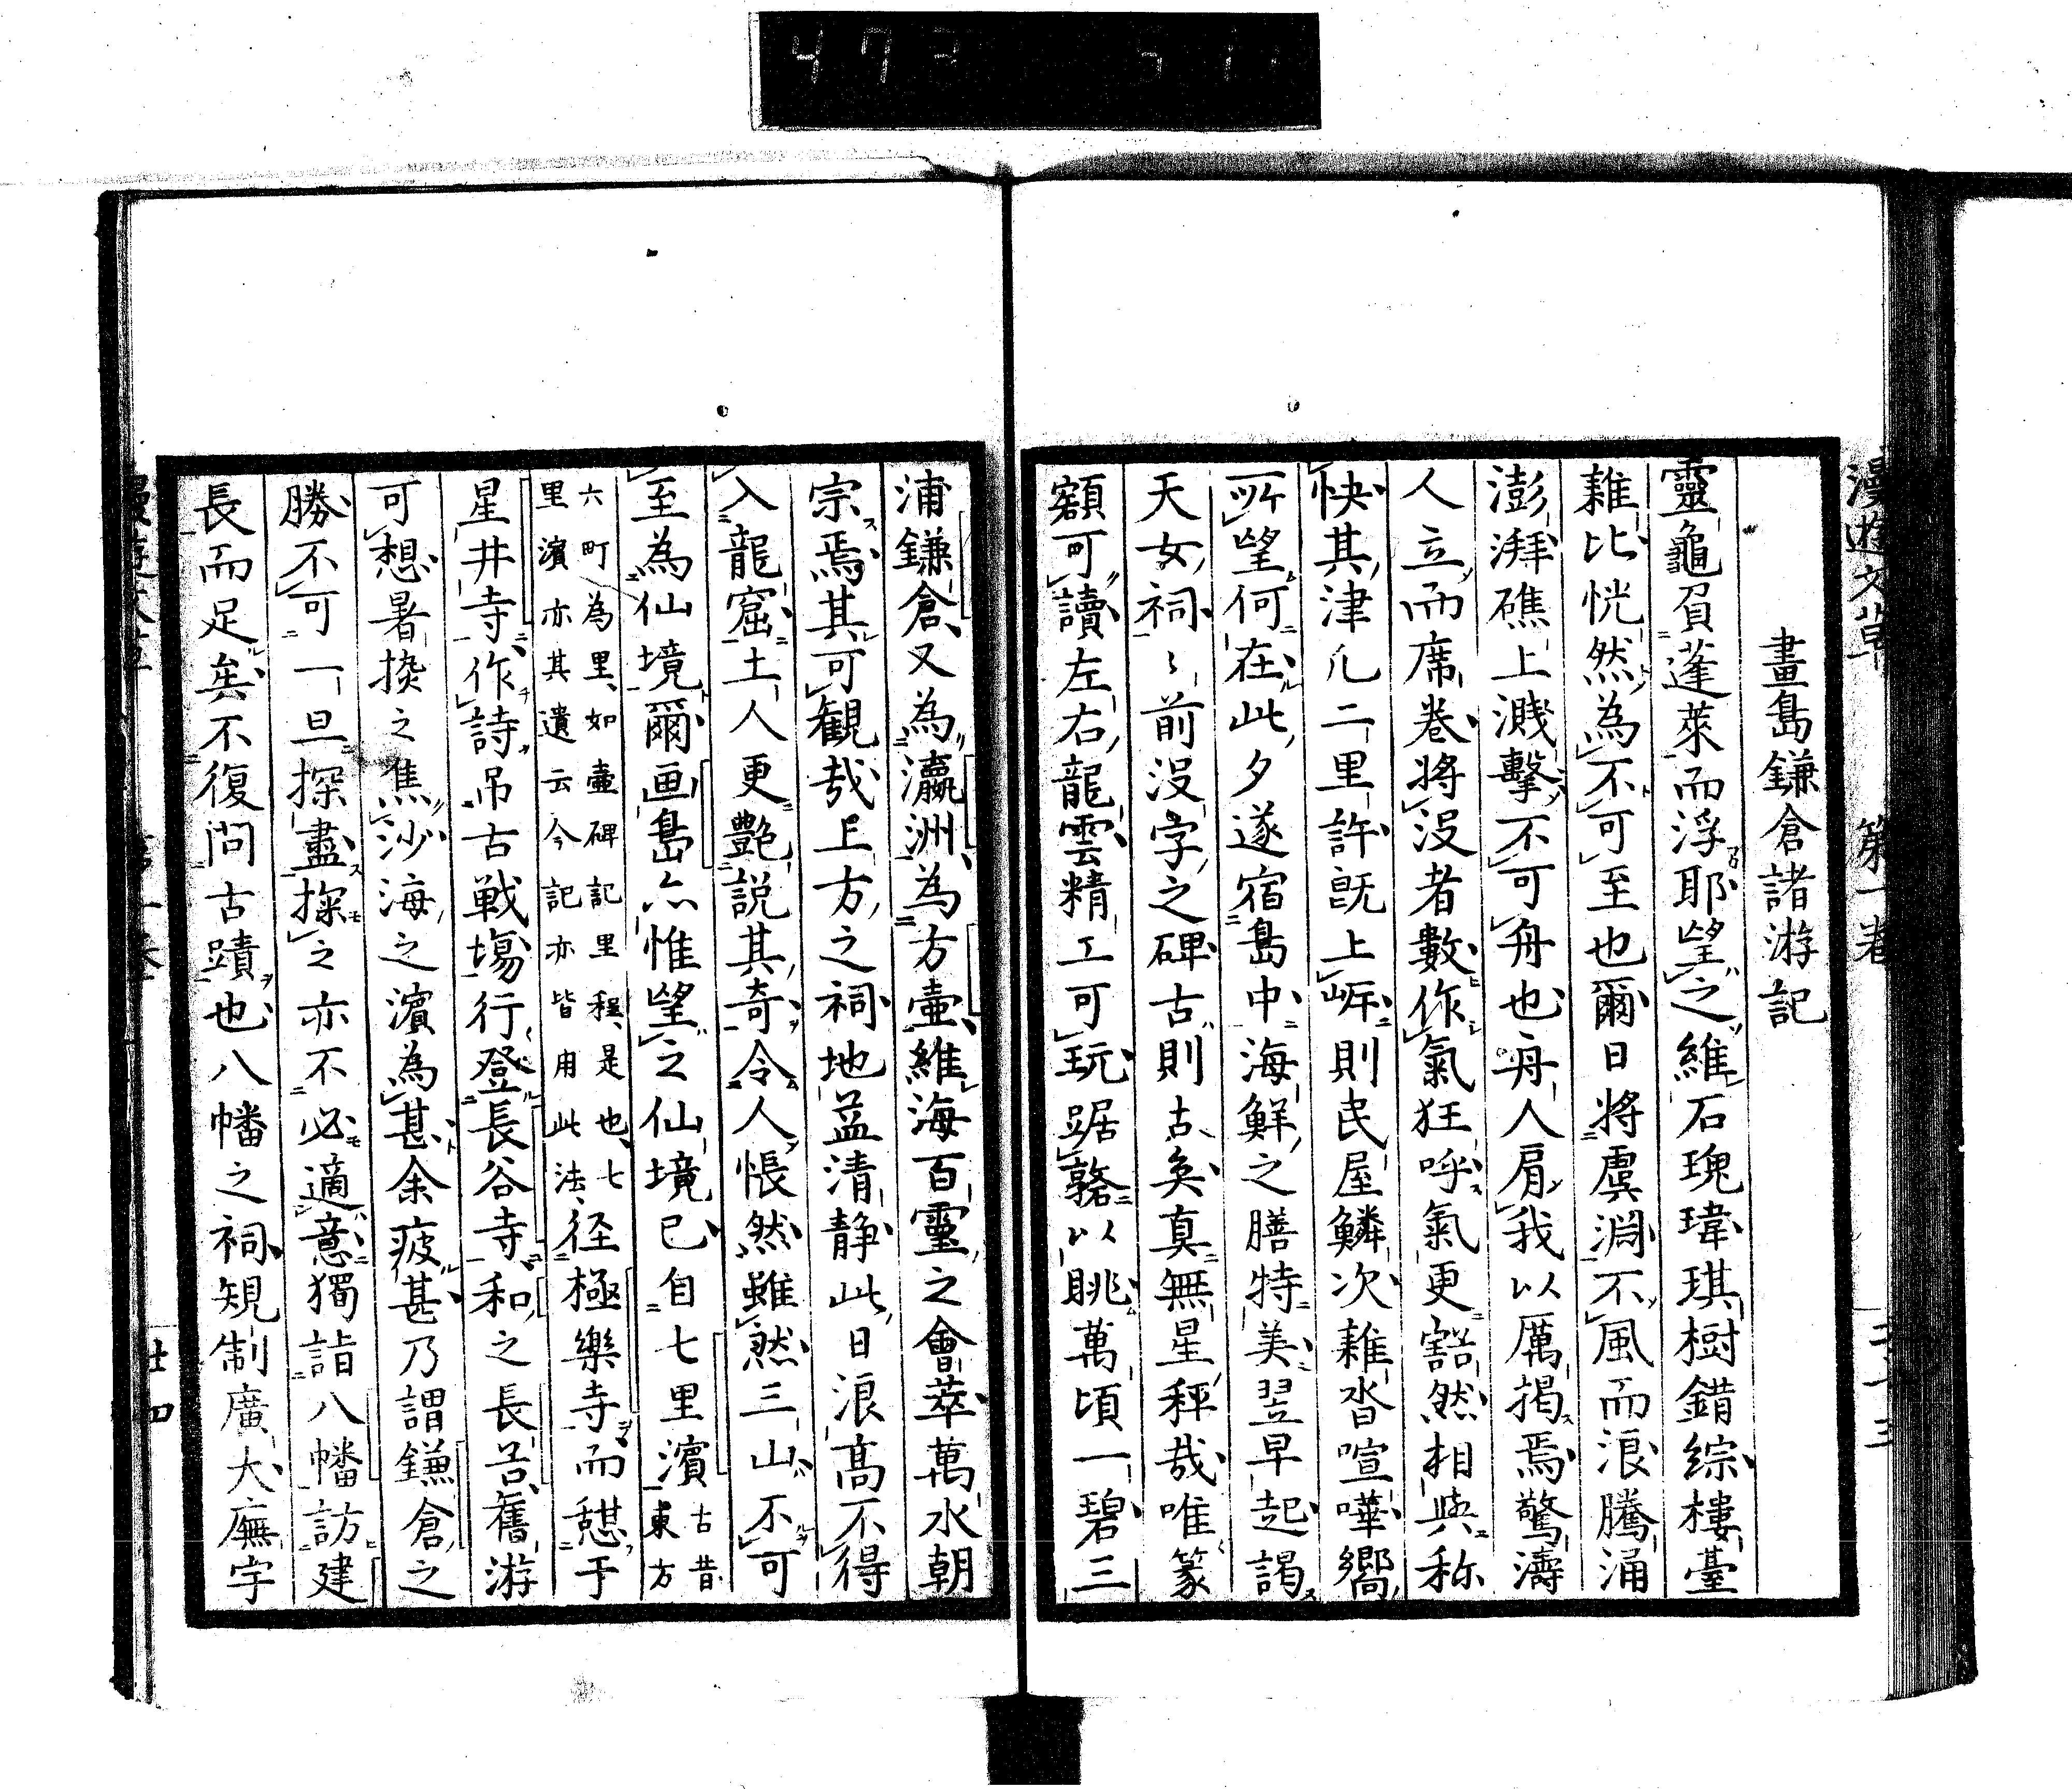 畫島鎌倉諸游記
靈龜負蓬萊而浮耶望之維石瑰瑋琪樹錯綜樓臺
雜比恍然為不可至也爾日將虞淵不風而浪騰涌
澎湃礁上濺擊不可舟也舟人肩我以厲揭焉驚濤
人立而席卷將沒者數作氣狂呼氣更豁然相與称
快其津凡二里許既上岼則民屋鱗次雜沓喧嘩嚮
所望何在此夕遂宿島中海鮮之膳特美翌早起謁
天女祠〻前沒字之碑古則古矣真無星秤哉唯篆
額可讀左右龍雲精工可玩踞䜪以眺萬頃一碧三
浦鎌倉又為瀛洲為方壷維海百靈之會萃萬水朝
宗焉其可観哉上方之祠地益清静此日浪髙不得
入龍窟土人更艶説其奇令人悵然雖然三山不可
至為仙境爾画島亦惟望之仙境已自七里濱古昔東方
六町為里如壷碑記里程是也七
里濱亦其遺云今記亦皆用此法径極樂寺而憩于
星井寺作詩吊古戦塲行登長谷寺和之長谷舊游
可想暑換之焦沙海之濱為甚余疲甚乃謂鎌倉之
勝不可一旦探盡探之亦不必適意獨詣八幡訪建
長而足矣不復問古蹟也八幡之祠規制廣大廡宇
漫遊文草
第一卷
二十三
廿四